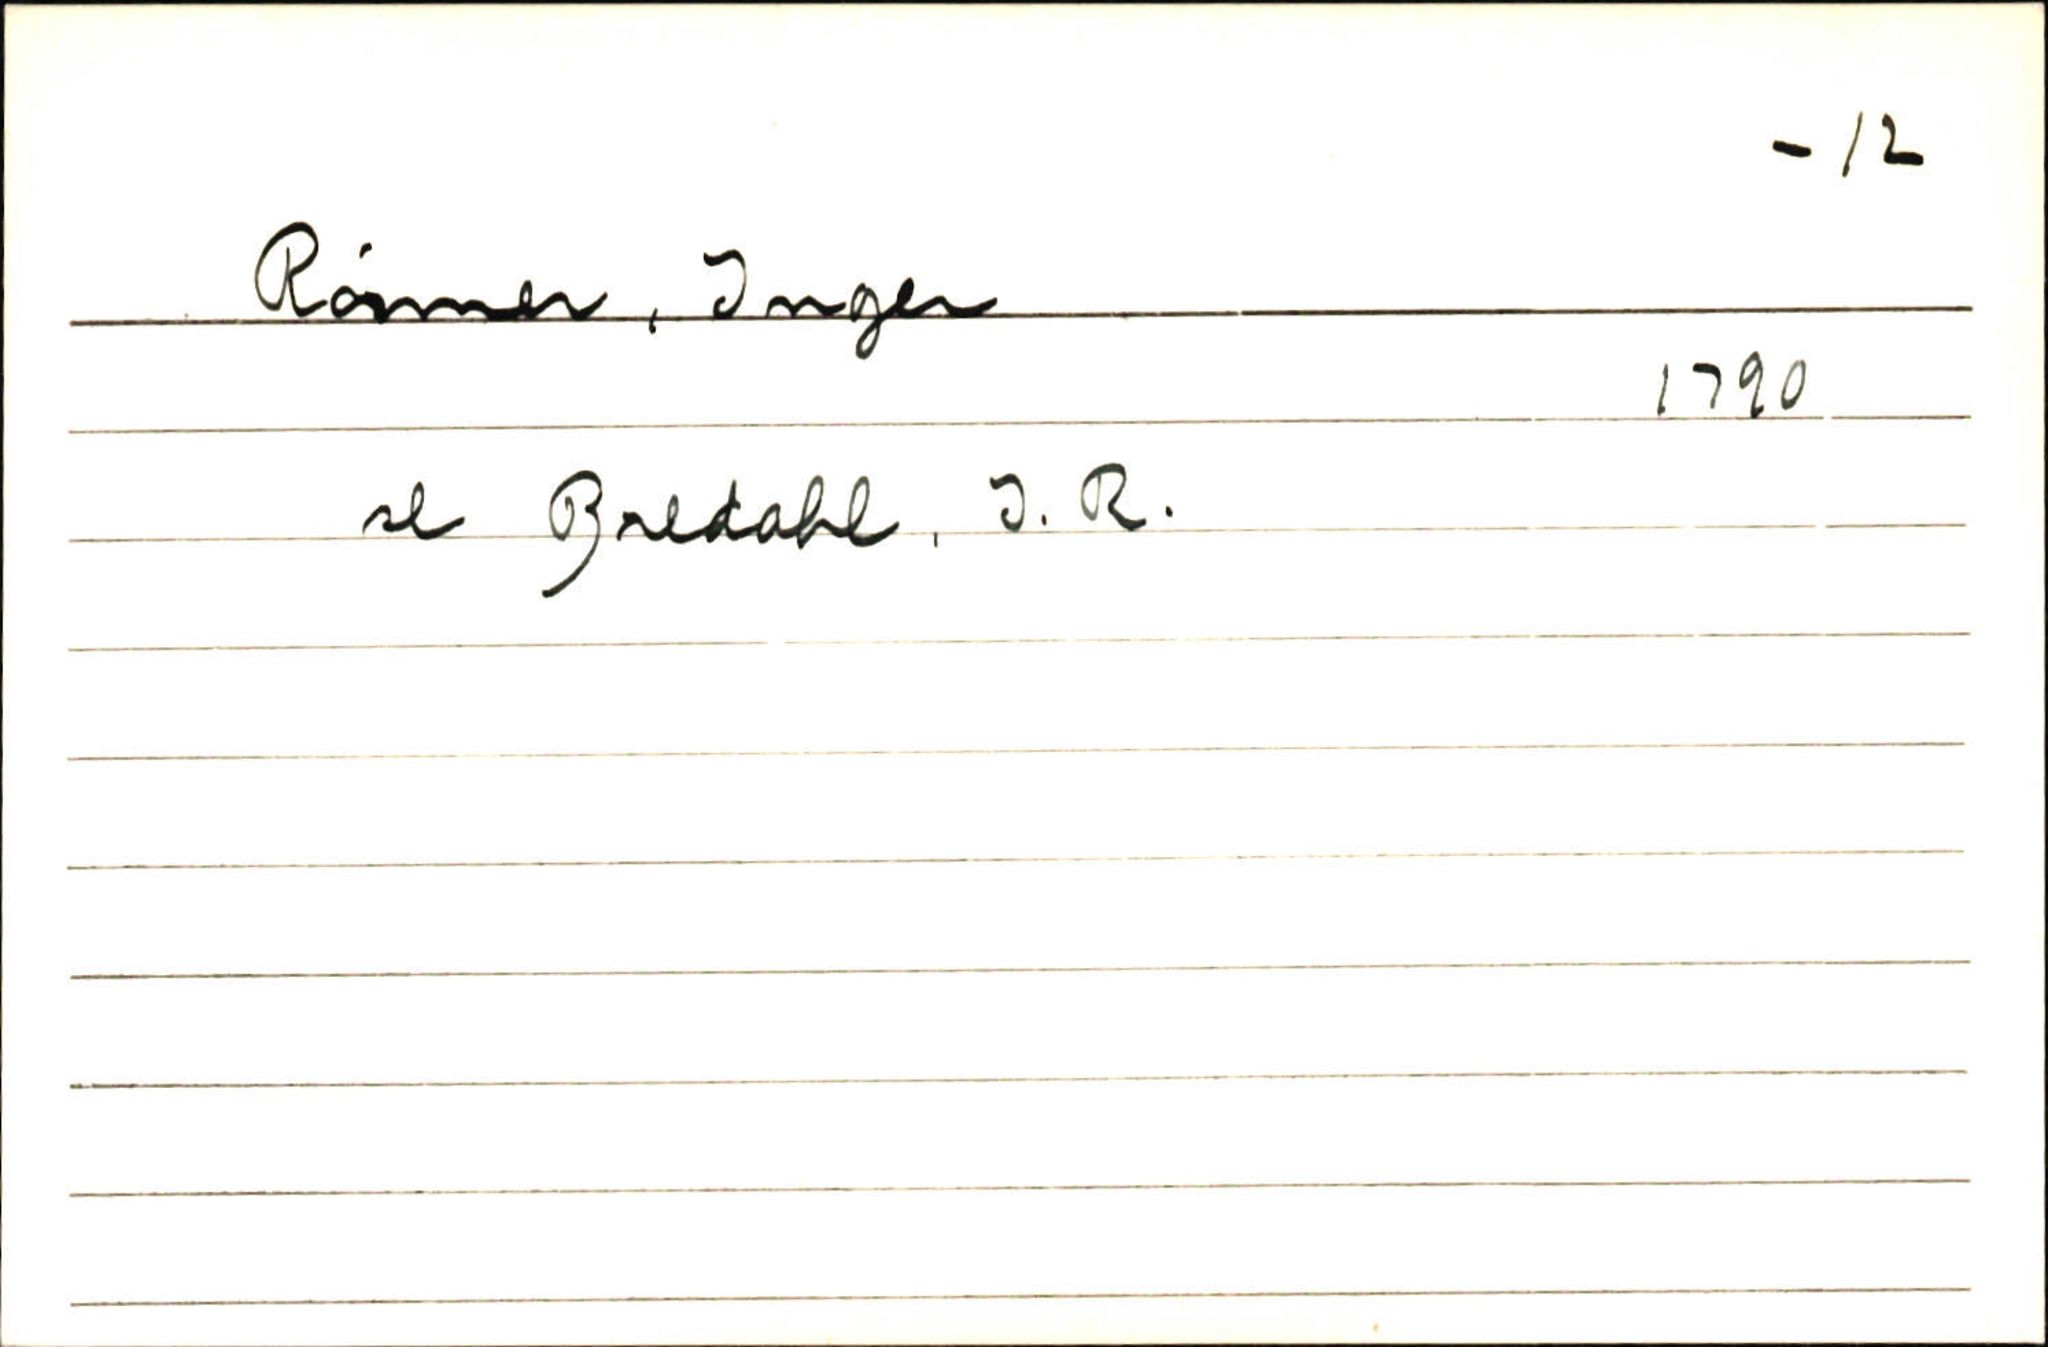 - 12
Rómer, Inger
1790
se Bredahl, I. R.